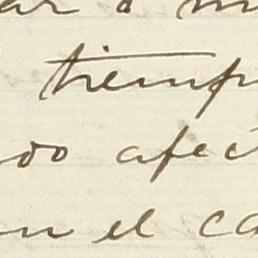 ar a m
tiemp
do afec
en el ca